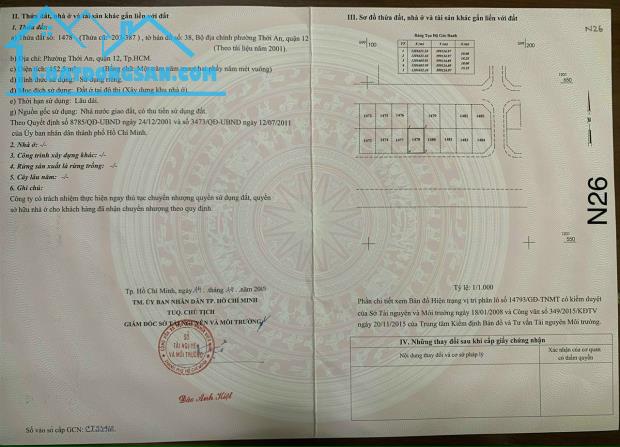 II. Thửa đất, nhà ở và tài sản khác gắn liền với đất
1. Thửa đất:
a) Thửa đất số: 1478 (Thửa cũ: 387), tờ bản đồ số 38, Bộ địa chính phường Thới An, quận 12
(Theo tài liệu năm 2001).
b) Địa chỉ: Phường Thới An, quận 12, Tp.HCM.
c) Diện tích: 152.5 m² (Bằng chữ: Một trăm năm mươi hai phẩy năm mét vuông)
d) Hình thức sử dụng: Sử dụng riêng.
đ) Mục đích sử dụng: Đất ở tại đô thị (Xây dựng khu nhà ở)
e) Thời hạn sử dụng: Lâu dài.
g) Nguồn gốc sử dụng: Nhà nước giao đất, có thu tiền sử dụng đất.
Theo Quyết định số 8785/QĐ-UBND ngày 24/12/2001 và số 3473/QĐ-UBND ngày 12/07/2011
của Ủy ban nhân dân thành phố Hồ Chí Minh.
2. Nhà ở: -/-
3. Công trình xây dựng khác: -/-
4. Rừng sản xuất là rừng trồng: -/-
5. Cây lâu năm: -/-
6. Ghi chú:
Công ty có trách nhiệm thực hiện ngay thủ tục chuyển nhượng quyền sử dụng đất, quyền
sở hữu nhà ở cho khách hàng đã nhận chuyển nhượng theo quy định.
Tp. Hồ Chí Minh, ngày tháng năm 2015
TM. ỦY BAN NHÂN DÂN TP. HỒ CHÍ MINH
TUQ. CHỦ TỊCH
GIÁM ĐỐC SỞ TÀI NGUYÊN VÀ MÔI TRƯỜNG
SỞ
TÀI NGUYÊN
VÀ MÔI TRƯỜNG
Đào Anh Kiệt
Số vào sổ cấp GCN:
BATDONGSAN.COM.VN
III. Sơ đồ thửa đất, nhà ở và tài sản khác gắn liền với đất
N26
Bảng Tọa Độ Góc Ranh
100
200
1473
1475
1476
1479
1482
1485
1474
1477
1478
1480
1483
1484
550
550
N26
Tỷ lệ: 1/1.000
Phần chi tiết xem Bản đồ Hiện trạng vị trí phân lô số 14793/GĐ-TNMT có kiểm duyệt
của Sở Tài nguyên và Môi trường ngày 18/01/2008 và Công văn số 349/2015/KĐTV
ngày 20/11/2015 của Trung tâm Kiểm định Bản đồ và Tư vấn Tài nguyên Môi trường.
IV. Những thay đổi sau khi cấp giấy chứng nhận
Nội dung thay đổi và cơ sở pháp lý
Xác nhận của cơ quan
có thẩm quyền